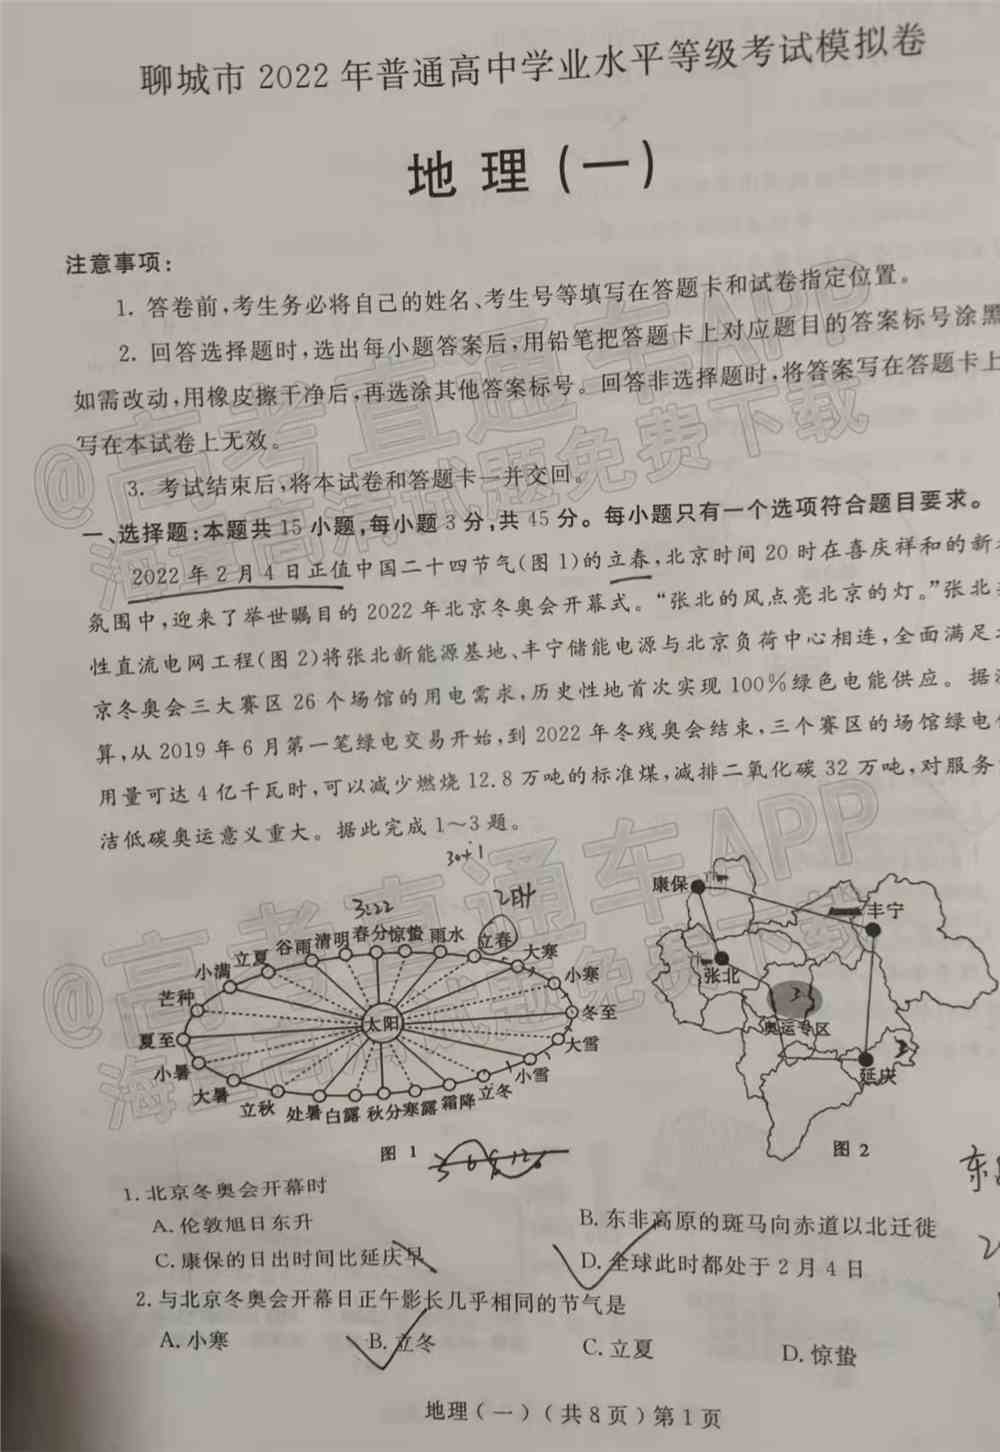 聊城市 2022 年普通高中学业水平等级考试模拟卷
地 理 (一)
注意事项:
1. 答卷前,考生务必将自己的姓名、考生号等填写在答题卡和试卷指定位置。
2. 回答选择题时,选出每小题答案后,用铅笔把答题卡上对应题目的答案标号涂黑
如需改动,用橡皮擦干净后,再选涂其他答案标号。回答非选择题时,将答案写在答题卡上
写在本试卷上无效。
3. 考试结束后,将本试卷和答题卡一并交回。
一、选择题:本题共 15 小题,每小题 3 分,共 45 分。每小题只有一个选项符合题目要求。
2022 年 2 月 4 日正值中国二十四节气(图 1)的立春,北京时间 20 时在喜庆祥和的新
氛围中,迎来了举世瞩目的 2022 年北京冬奥会开幕式。“张北的风点亮北京的灯。”张北
性直流电网工程(图 2)将张北新能源基地、丰宁储能电源与北京负荷中心相连,全面满足
京冬奥会三大赛区 26 个场馆的用电需求,历史性地首次实现 100%绿色电能供应。据
算,从 2019 年 6 月第一笔绿电交易开始,到 2022 年冬残奥会结束,三个赛区的场馆绿电
用量可达 4 亿千瓦时,可以减少燃烧 12.8 万吨的标准煤,减排二氧化碳 32 万吨,对服务
洁低碳奥运意义重大。据此完成 1～3 题。
30+1
3.22
2.4
小满 立夏 谷雨 清明 春分 惊蛰 雨水 立春 大寒 小寒
芒种
冬至
夏至
太阳
大雪
小暑
小雪
大暑 立秋 处暑 白露 秋分 寒露 霜降 立冬
图 1
康保
丰宁
张北
奥运专区
延庆
图 2
1. 北京冬奥会开幕时
A. 伦敦旭日东升
B. 东非高原的斑马向赤道以北迁徙
C. 康保的日出时间比延庆早
D. 全球此时都处于 2 月 4 日
2. 与北京冬奥会开幕日正午影长几乎相同的节气是
A. 小寒
B. 立冬
C. 立夏
D. 惊蛰
地理(一)(共 8 页)第 1 页
@高考直通车APP
海量高清试题免费下载
@高考直通车APP